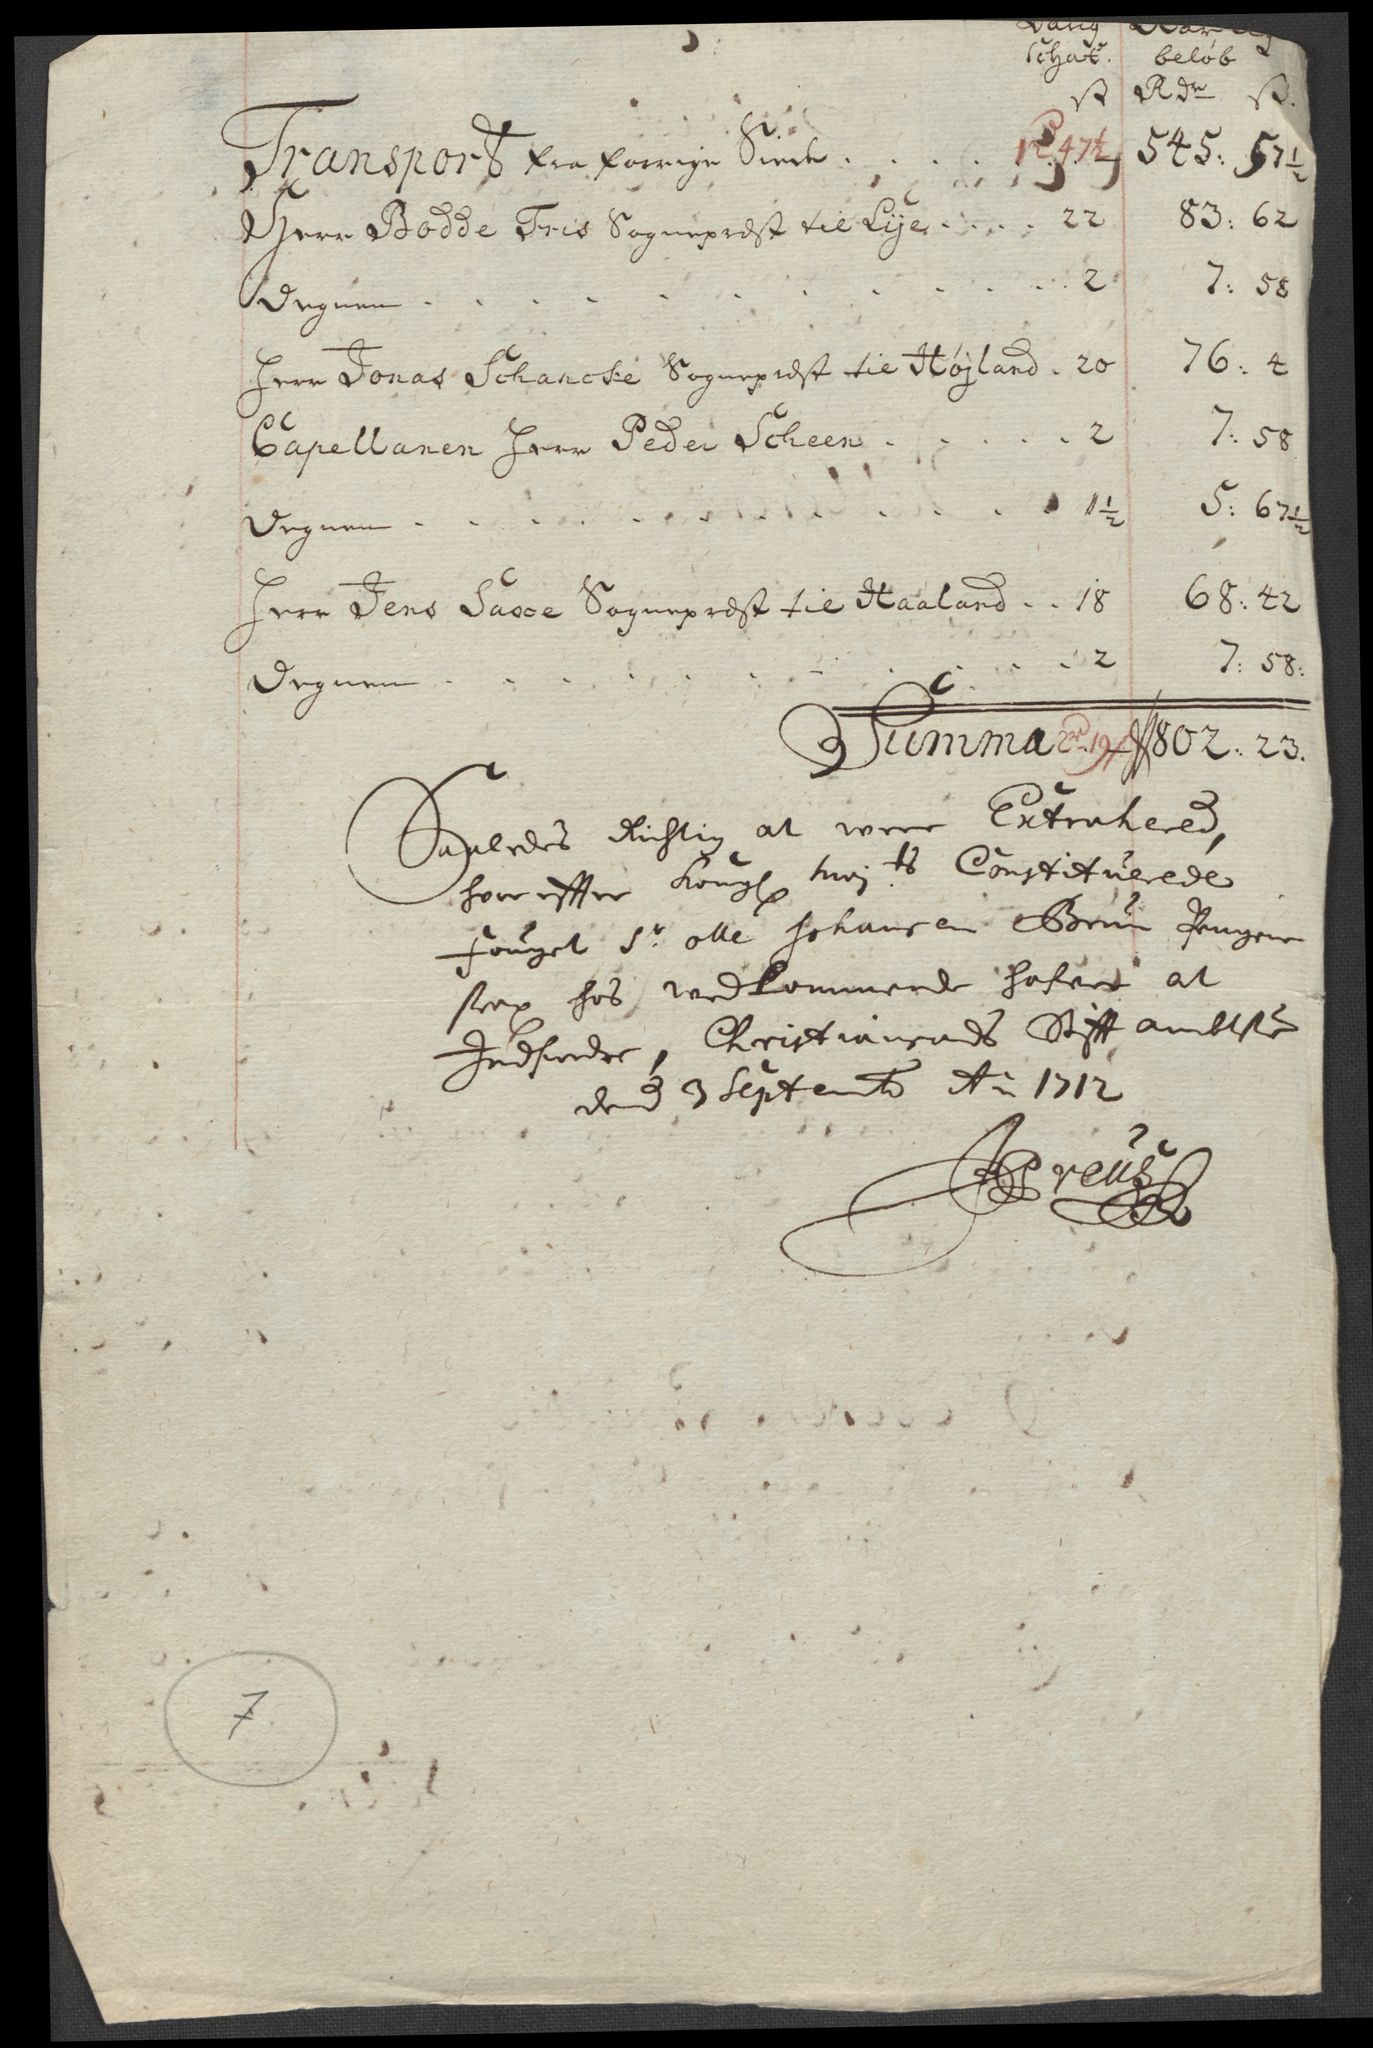 schat. beløb
ß Rdr ß.
Transport fra forrige Siede . . . . 1rd 47½ 545: 57½
Herr Bodde Tris Sogneprest til Lÿe . . . . 22 83: 62
Degnen . . . . . . . . . . . 2 7: 58
Herr Jonas Schancke Sogneprest til Højland . 20 76: 4
Capellanen Herr Peder Scheen . . . . . 2 7: 58
Degnen . . . . . . . . . . . 1½ 5: 67½
Herr Jens Saxe Sogneprest til Haaland . . 18 68: 42
Degnen . . . . . . . . . . . 2 7: 58:
Summa 802: 23.
Saaledes Rigtig at were Extrahered,
hvor effter Kongl: May:ts Constituerede
Fouget Sr. Olle Johansen Brun
hos vedkommende hafver at
Indfordre, Christiansands Stifft ambtstue
dend 3 Septemb. Ao 1712
JPreüs
7